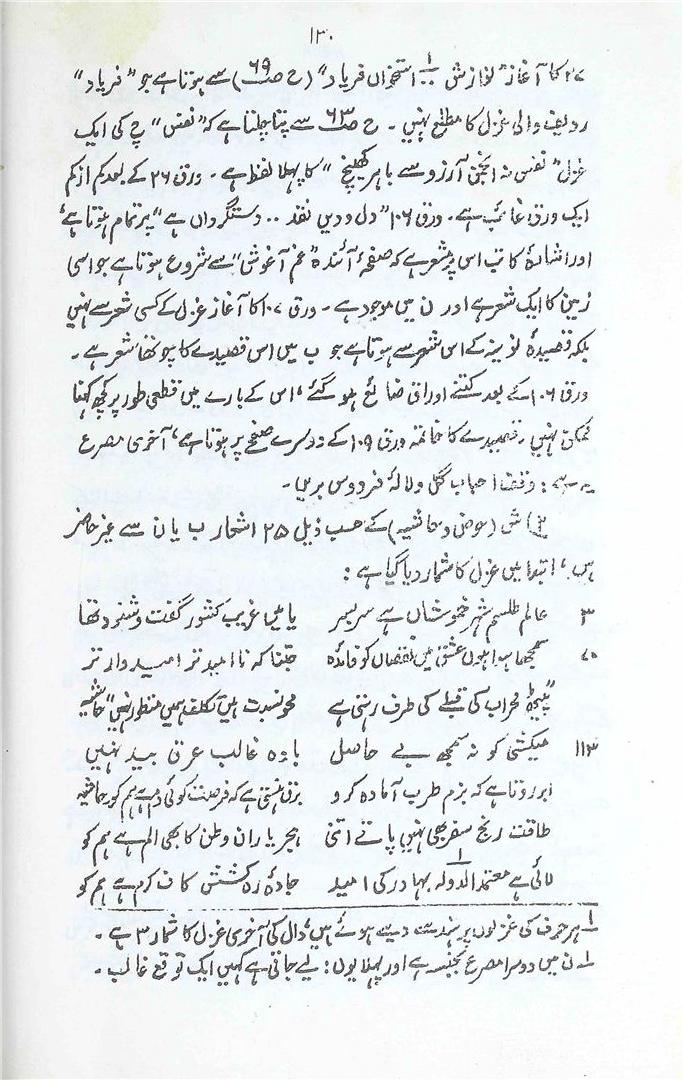 ۱۳۰
۲۷ کا آغاز "نوازش ۱؎ استخواں فریاد" (ح ص ۶۹) سے ہوتا ہے جو "فریاد"
ردیف والی غزل کا مطلع نہیں۔ ح ص ۶۳ سے پتا چلتا ہے کہ "نفس" چ کی ایک
غزل "نفس نہ انجمنِ آرزو سے باہر کھینچ" کا پہلا لفظ ہے۔ ورق ۲۶ کے بعد کم از کم
ایک ورق غائب ہے۔ ورق ۱۰۶ "دل و دیں نقد .. دستگرداں ہے" پر تمام ہوتا ہے'
اور اشارۂ کاتب اس پر مشعر ہے کہ صفحۂ آئندہ "غم آغوش" سے شروع ہوتا ہے جو اسی
زمین کا ایک شعر ہے اور ن میں موجود ہے۔ ورق ۱۰۷ کا آغاز غزل کے کسی شعر سے نہیں
بلکہ قصیدۂ نونیہ کے اس شعر سے ہوتا ہے جو ب میں اس قصیدے کا چوتھا شعر ہے۔
ورق ۱۰۶ کے بعد کتنے اوراق ضائع ہو گئے' اس کے بارے میں قطعی طور پر کچھ کہنا
ممکن نہیں۔ قصیدے کا خاتمہ ورق ۱۰۹ کے دوسرے صفحے پر ہوتا ہے' آخری مصرع
یہ ہے: وقفِ احباب گل و لالۂ فردوس بریں۔
۳) ش (حوض و حاشیہ) کے حسب ذیل ۲۵ اشعار ب یا ن سے غیر حاضر
ہیں' ابتدا میں غزل کا شمار دیا گیا ہے:
۳ عالم طلسمِ شہرِ خموشاں ہے سربسر یا میں غریبِ کشورِ گفت و شنود تھا
۷۰ سمجھا ہوا ہوں عشق میں نقصاں کو فائدہ جتنا کہ ناامید تر امیدوار تر
"پیٹھ محراب کی قبلے کی طرف رہتی ہے محوِ نسبت ہیں تکلف ہمیں منظور نہیں" حاشیہ
۱۱۳ میکشی کو نہ سمجھ بے حاصل بادہ غالب عرقِ بید نہیں
ابر روتا ہے کہ بزمِ طرب آمادہ کرو برق ہنستی ہے کہ فرصت کوئی دم ہے ہم کو حاشیہ
طاقتِ رنجِ سفر بھی نہیں پاتے اتنی ہجرِ یارانِ وطن کا بھی الم ہے ہم کو
لائی ہے معتمد الدولہ ۱؎ بہادر کی امید جادۂ رہ کششِ کافِ کرم ہے ہم کو
۱؎ ہر حرف کی غزلوں پر ہندسے دیے ہوئے ہیں' دال کی آخری غزل کا شمار ۳ ہے۔
۱؎ ن میں دوسرا مصرع بجنسہ ہے اور پہلا یوں: لیے جاتی ہے کہیں ایک توقع غالب۔